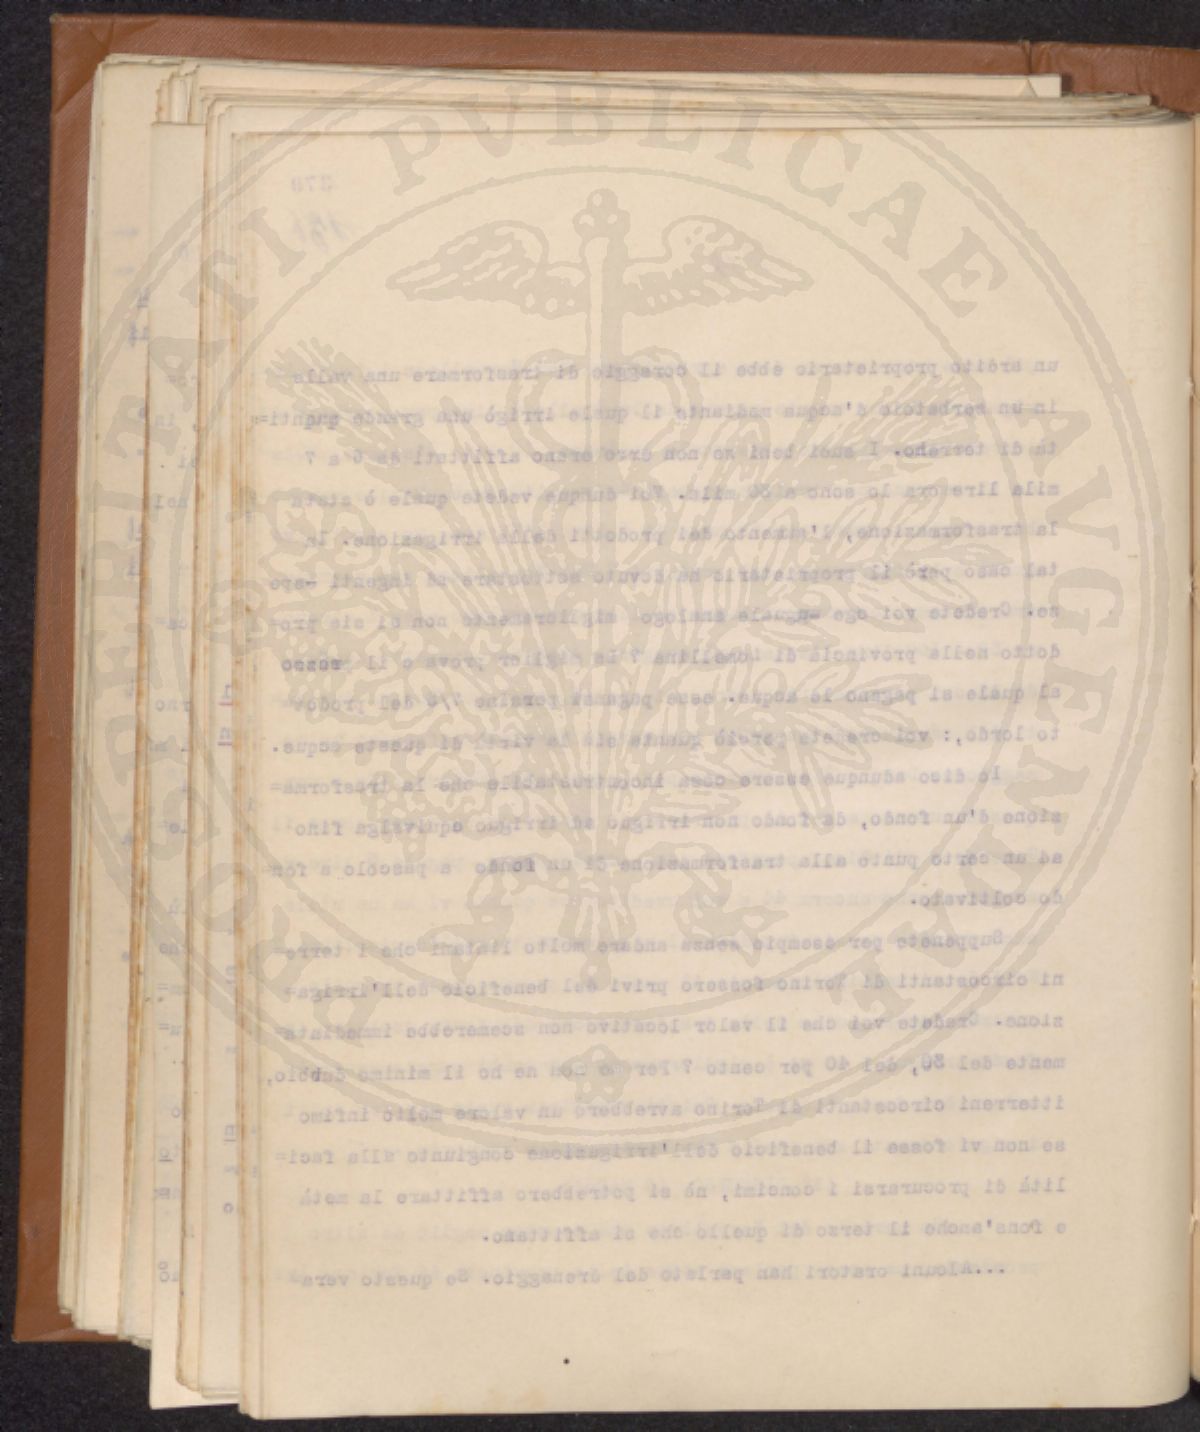 PROSPERITATI PUBLICAE AVGENDAE
378
un ardito proprietario ebbe il coraggio di trasformare una valle
in un serbatoio d'acqua mediante il quale irrigò una grande quanti=
tà di terreno. I suoi beni se non erro erano affittati da 6 a 7
mila lire ora lo sono a 30 mila. Voi dunque vedete quale è stata
la trasformazione, l'aumento dei prodotti della irrigazione. In
tal caso però il proprietario ha dovuto sottostare ad ingenti spe
se. Credete voi che uguale analogo miglioramento non si sia pro=
dotto nella provincia di Lomellina ? la miglior prova è il prezzo
al quale si pagano le acque. esse pagansi persino del prodot
to lordo,: voi vedete perciò quanta sia la virtù di queste acque.
Io dico adunque essere cosa incontrastabile che la trasforma=
zione d'un fondo, da fondo non irriguo ad irriguo equivalga fino
ad un certo punto alla trasformazione di un fondo a pascolo a fon=
do coltivato.
Supponete per esempio senza andare molto lintani che i terre=
ni circostanti di Torino fossero privi del beneficio dell'irriga=
zione. Credete voi che il valor locativo non scemerebbe immediata=
mente del 30, del 40 per cento ? Per me non ne ho il minimo dubbio,
itterreni circostanti di Torino avrebbero un valore molto infimo
se non vi fosse il beneficio dell'irrigazione congiunto alla faci=
lità di procurarsi i concimi, nè si potrebbero affittare la metà
e fors'anche il terzo di quello che si affittano.
...Alcuni oratori han parlato del drenaggio. Se questo vera